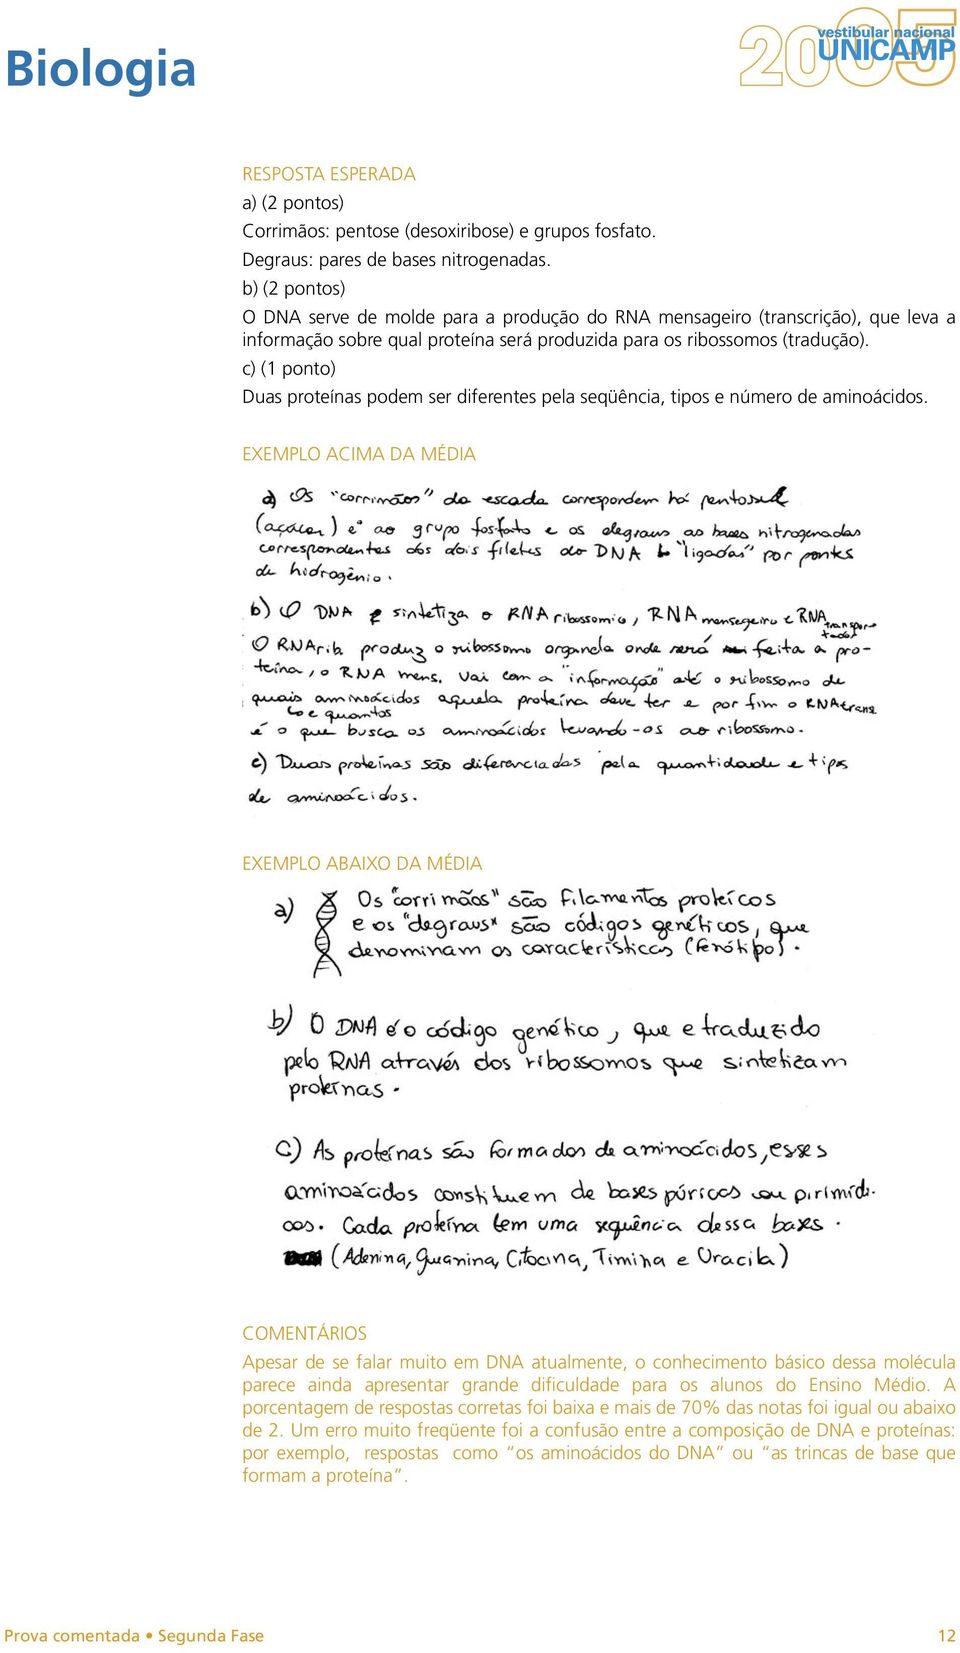 Biologia
2005
vestibular nacional
UNICAMP
RESPOSTA ESPERADA
a) (2 pontos)
Corrimãos: pentose (desoxiribose) e grupos fosfato.
Degraus: pares de bases nitrogenadas.
b) (2 pontos)
O DNA serve de molde para a produção do RNA mensageiro (transcrição), que leva a
informação sobre qual proteína será produzida para os ribossomos (tradução).
c) (1 ponto)
Duas proteínas podem ser diferentes pela seqüência, tipos e número de aminoácidos.
EXEMPLO ACIMA DA MÉDIA
a) Os "corrimãos" da escada correspondem há
(açúcar) e ao grupo fosfato e os degraus as bases nitrogenadas
correspondentes dos dois filetes do DNA "ligadas" por pontes
de hidrogênio.
b) O DNA sintetiza o RNA ribossomio, RNA mensegeiro e RNA transpor-
tador
O RNArib. produz o ribossomo organela onde será feita a pro-
teína, o RNA mens. vai com a "informação" até o ribossomo de
quais aminoácidos aquela proteína deve ter e por fim o RNAtrans
e quantos
é o que busca os aminoácidos levando-os ao ribossomo.
c) Duas proteínas são diferenciadas pela quantidade e tipos
de aminoácidos.
EXEMPLO ABAIXO DA MÉDIA
a) Os "corrimãos" são filamentos proteícos
e os "degraus" são códigos genéticos, que
denominam as características (fenótipo).
b) O DNA é o código genético, que e traduzido
pelo RNA através dos ribossomos que sintetizam
proteínas.
c) As proteínas são formadas de aminoácidos, esses
aminoácidos constituem de bases púricas ou pirimídi-
cas. Cada proteína tem uma sequência dessa bases.
(Adenina, Guanina, Citocina, Timina e Uracila)
COMENTÁRIOS
Apesar de se falar muito em DNA atualmente, o conhecimento básico dessa molécula
parece ainda apresentar grande dificuldade para os alunos do Ensino Médio. A
porcentagem de respostas corretas foi baixa e mais de 70% das notas foi igual ou abaixo
de 2. Um erro muito freqüente foi a confusão entre a composição de DNA e proteínas:
por exemplo, respostas como "os aminoácidos do DNA" ou "as trincas de base que
formam a proteína".
Prova comentada • Segunda Fase 12